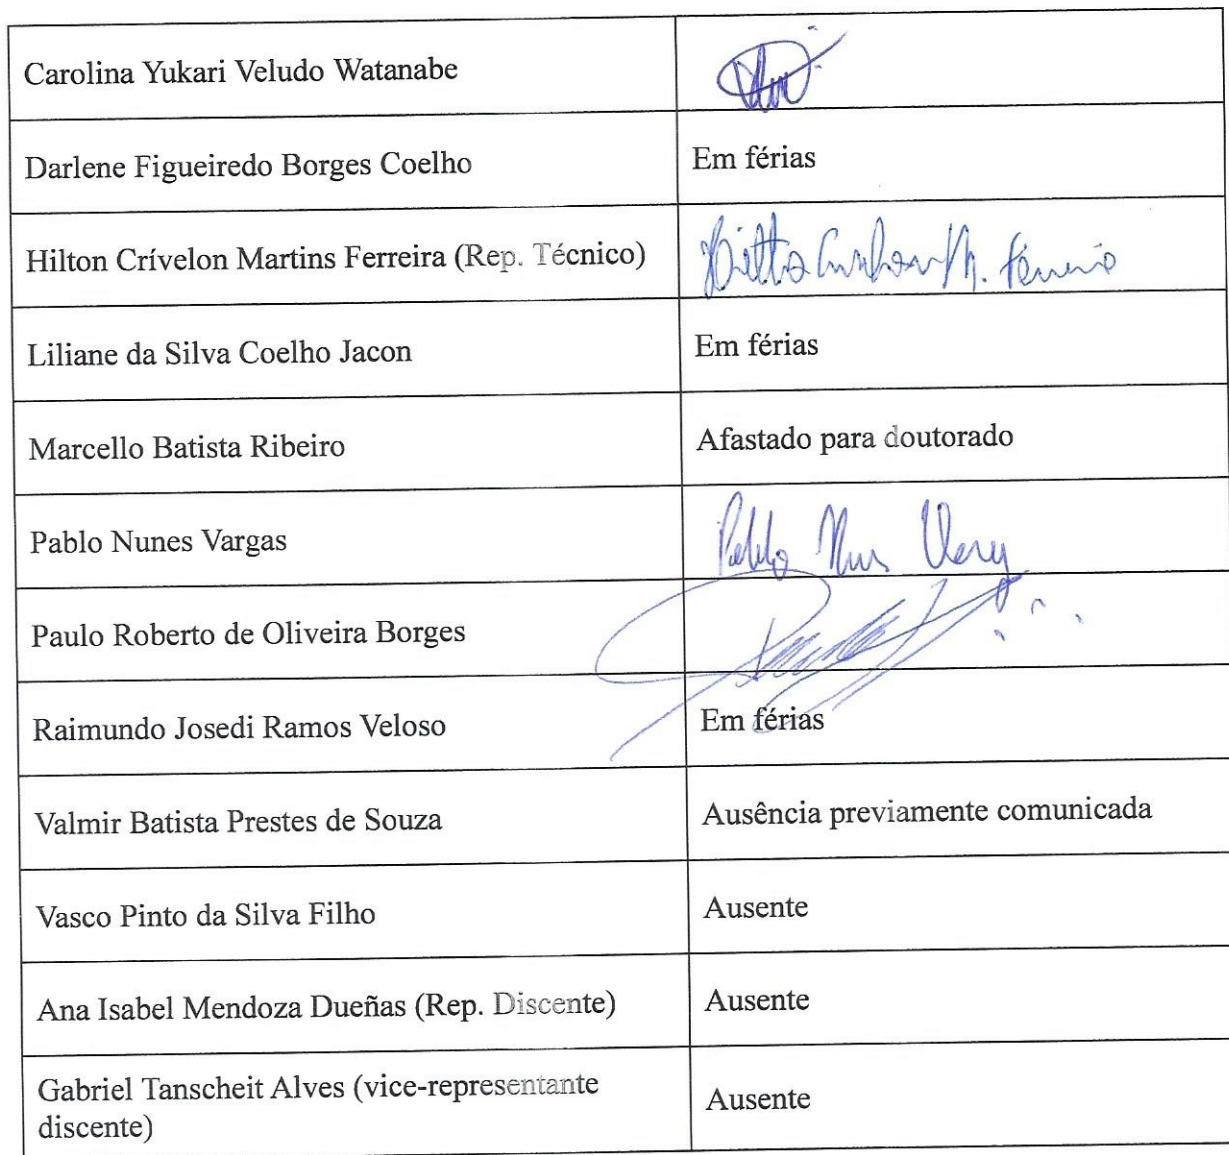 Carolina Yukari Veludo Watanabe
Darlene Figueiredo Borges Coelho Em férias
Hilton Crívelon Martins Ferreira (Rep. Técnico)
Liliane da Silva Coelho Jacon Em férias
Marcello Batista Ribeiro Afastado para doutorado
Pablo Nunes Vargas
Paulo Roberto de Oliveira Borges
Raimundo Josedi Ramos Veloso Em férias
Valmir Batista Prestes de Souza Ausência previamente comunicada
Vasco Pinto da Silva Filho Ausente
Ana Isabel Mendoza Dueñas (Rep. Discente) Ausente
Gabriel Tanscheit Alves (vice-representante
discente) Ausente